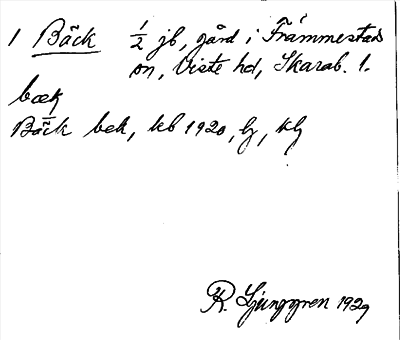 1 Bäck ½ jb, gård i Främmestads
sn, Viste hd, Skarab. l.
bæk
Bäck bek, kb 1920, lj, klj
R. Ljunggren 1929